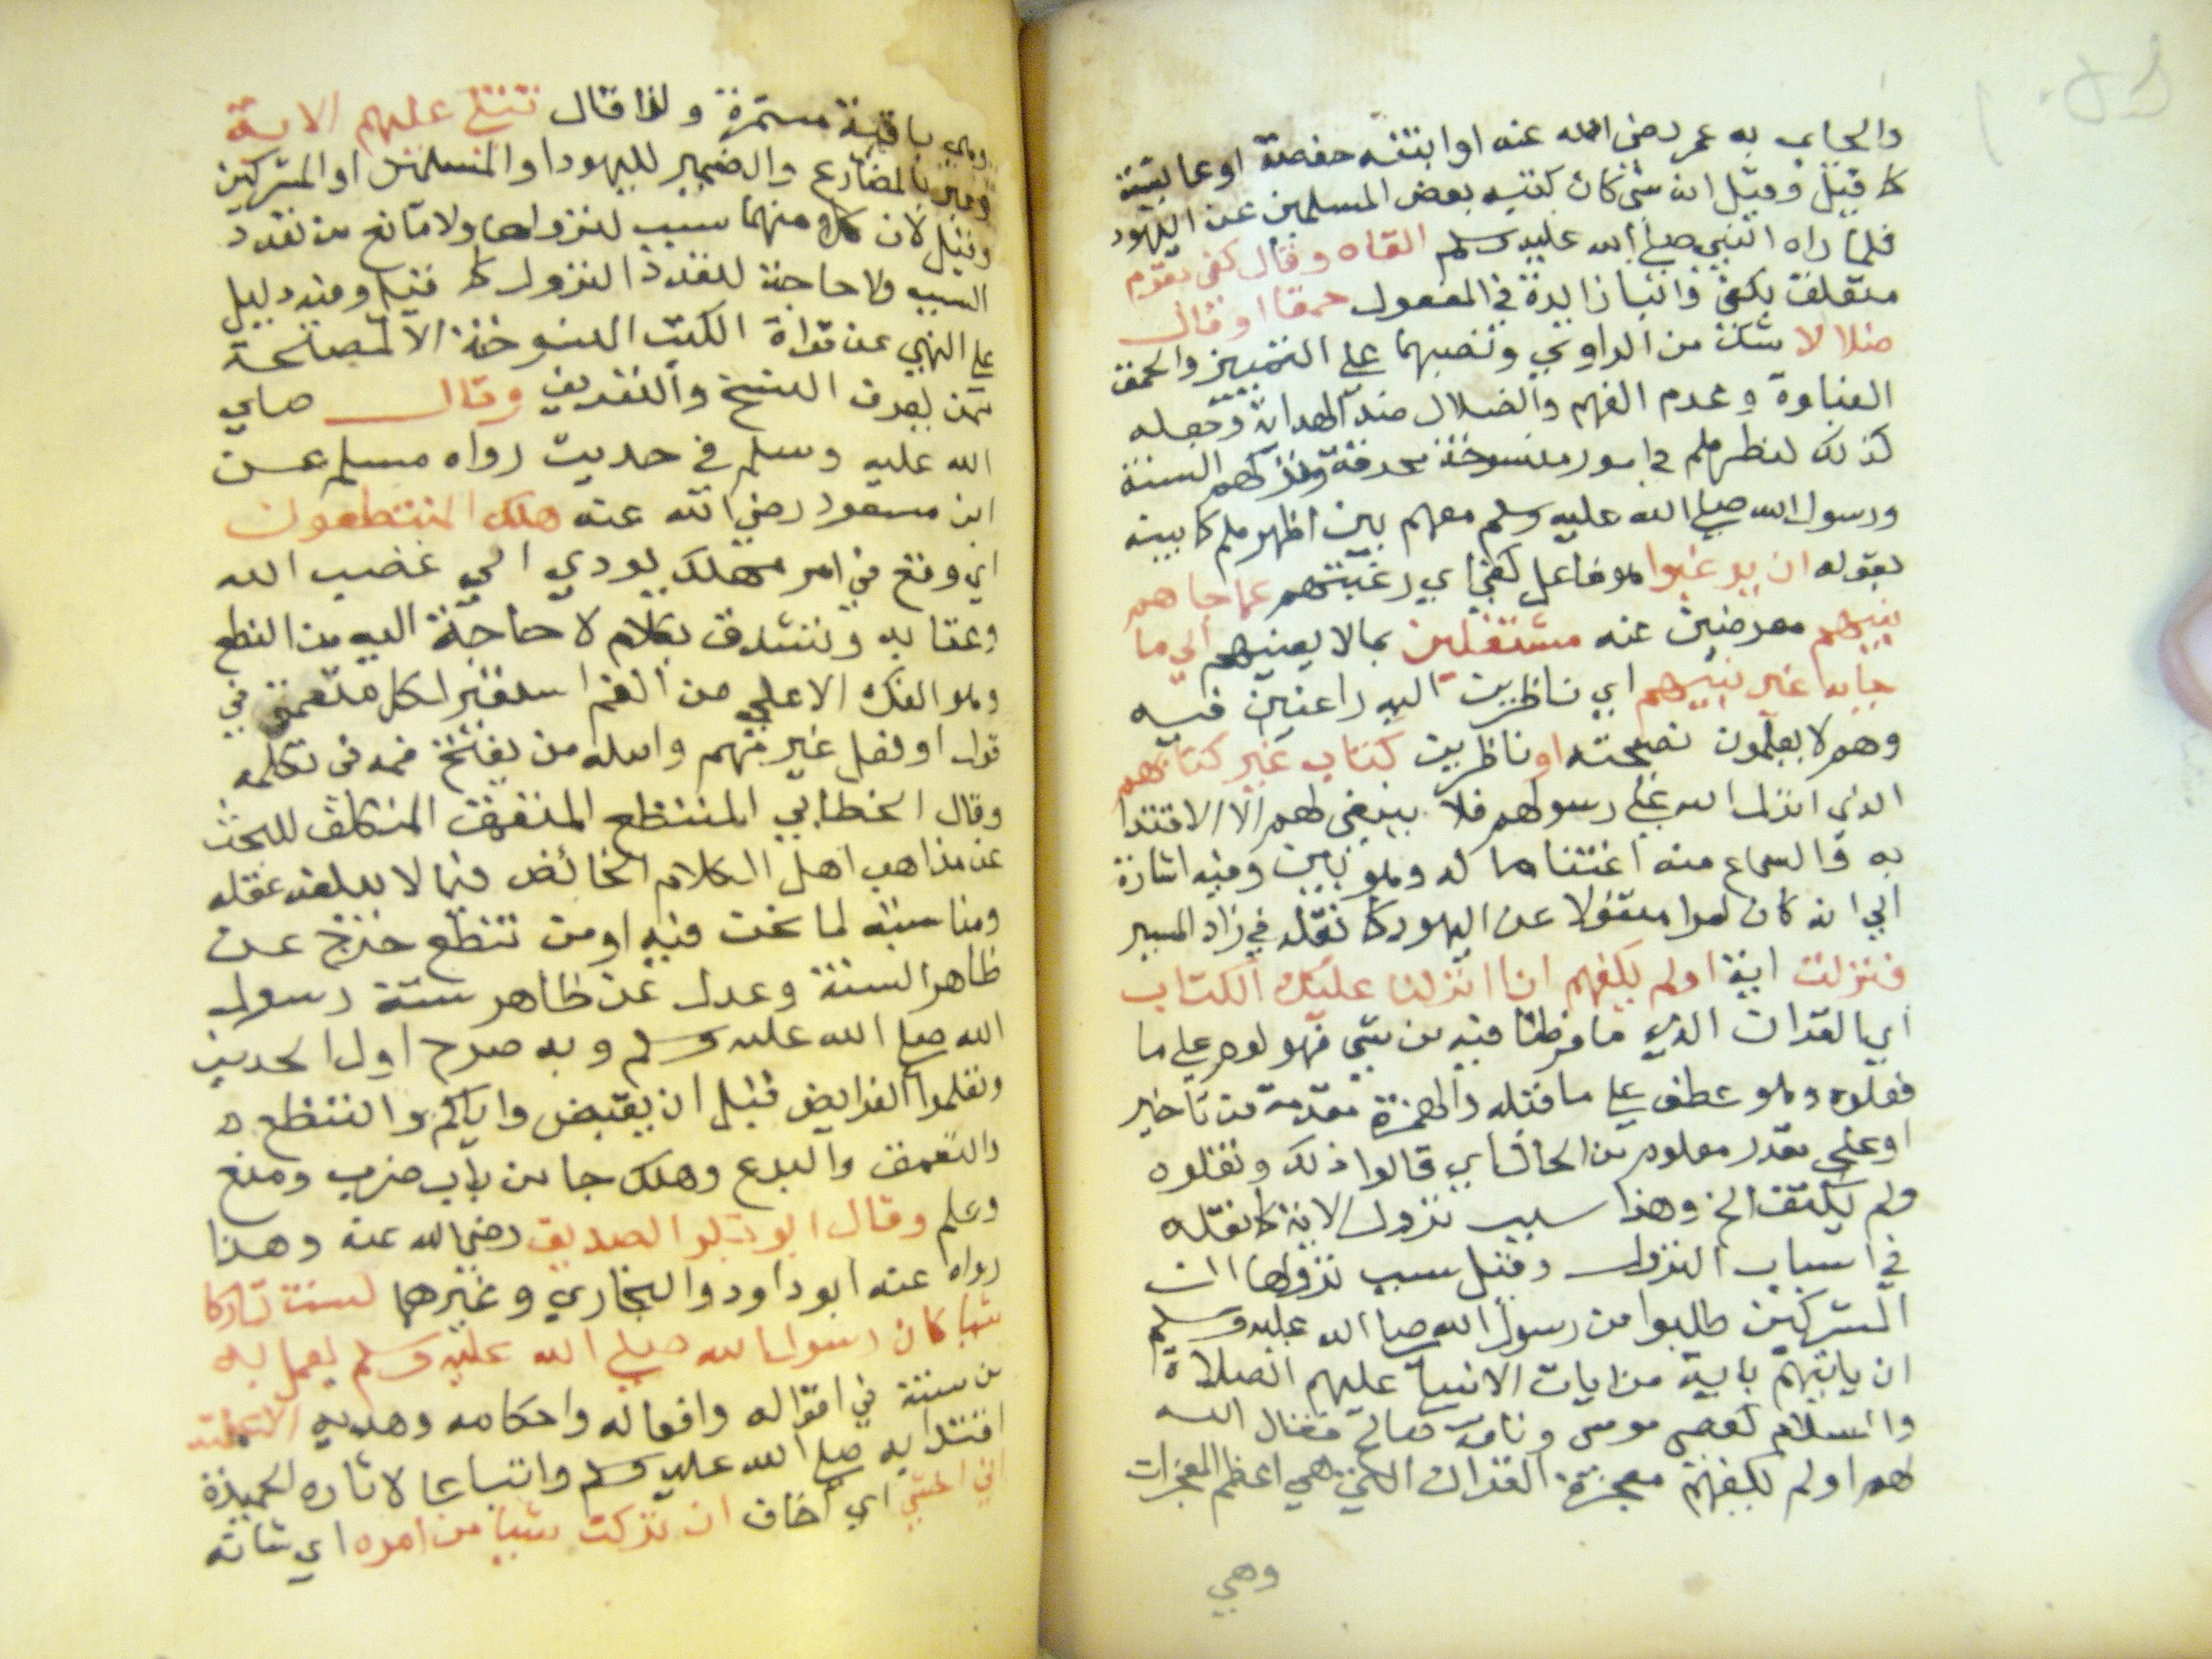 والجاي به عمر رضي الله عنه او ابنته حفصة او عايشة
كما قيل وقيل انه شي كان كتبه بعض المسلمين عن اليهود
فلما راه النبي صلى الله عليه وسلم القاه وقال كفى بقوم
متعلق بكفى والبا زايدة في المفعول حمقا او قال
ضلالا شك من الراوي ونصبهما على التمييز والحمق
الغباوة وعدم الفهم والضلال ضد الهداية وجعله
كذلك لنظرهم في امور منسوخة محرفة وتركهم السنة
ورسول الله صلى الله عليه وسلم معهم بين اظهرهم كما بينه
بقوله ان يرغبوا هو فاعل كفى اي رغبتهم عما جاهم
نبيهم معرضين عنه مشتغلين بما لا يعنيهم الى ما
جا به غير نبيهم اي ناظرين اليه راغبين فيه
وهم لا يعلمون نصيحته او ناظرين كتاب غير كتابهم
الذي انزل الله على رسولهم فلا ينبغي لهم الا الاقتدا
به والسماع منه اغتناما له وهو بين وفيه اشارة
الى انه كان امرا منقولا عن اليهود كما نقله في زاد المسير
فنزلت اية اولم يكفهم انا انزلنا عليك الكتاب
اي القران الذي ما فرطنا فيه من شي فهو لوم على ما
فعلوه وهو عطف على ما قبله والهمزة مقدمة من تاخير
او على مقدر معلوم من الحال اي قالوا ذلك ونقلوه
ولم يكتف الخ وهذا سبب نزول الاية كما نقله
في اسباب النزول وقيل سبب نزولها ان
المشركين طلبوا من رسول الله صلى الله عليه وسلم
ان ياتيهم باية من ايات الانبيا عليهم الصلاة
والسلام كعصى موسى وناقة صالح فقال الله
لهم اولم يكفهم معجزة القران التي هي اعظم المعجزات
وهي
وهي باقية مستمرة ولذا قال تتلى عليهم الاية
وعبر بالمضارع والضمير لليهود او المسلمين او المشركين
وقيل لان كلا منهما سبب لنزولها ولا مانع من تعدد
السبب ولا حاجة لتعدد النزول كما قيل وفيه دليل
على النهي عن قراة الكتب المنسوخة الا لمصلحة
ممن يعرف النسخ والتحريف وقال صلى
الله عليه وسلم في حديث رواه مسلم عن
ابن مسعود رضي الله عنه هلك المتنطعون
اي وقع في امر مهلك يودي الى غضب الله
وعقابه وتتشدق بكلام لا حاجة اليه من النطع
وهو الفك الاعلى من الفم استعير لكل متعمق في
قول او فعل غير مهم واصله من يفتح فمه في تكلمه
وقال الخطابي المتنطع المتعمق المتكلف للبحث
عن مذاهب اهل الكلام الخائض فيما لا يبلغه عقله
ومناسبته لما نحن فيه او من تنطع خرج عن
ظاهر السنة وعدل عن ظاهر سنة رسول
الله صلى الله عليه وسلم وبه صرح اول الحديث
وتعلموا الفرايض قبل ان يقبض واياكم والتنطع
والتعمق والبدع وهلك جا من باب ضرب ومنع
وعلم وقال ابو بكر الصديق رضي الله عنه وهذا
رواه عنه ابو داود والبخاري وغيرهما لست تاركا
شيا كان رسول الله صلى الله عليه وسلم يعمل به
من سنته في اقواله وافعاله واحكامه وهديه الا عملت
اقتدا به صلى الله عليه وسلم واتباعا لاثاره الحميدة
اني اخشى اي اخاف ان تركت شيا من امره اي شانه